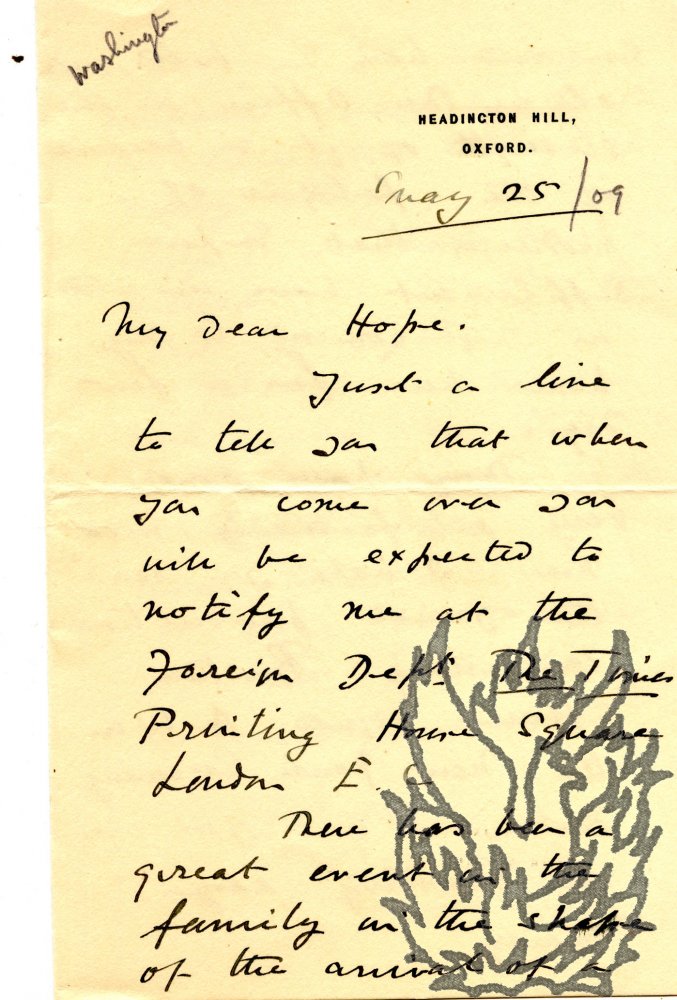 Washington
HEADINGTON HILL,
OXFORD.
May 25/09
My Dear Hope.
Just a line
to tell you that when
you come over you
will be expected to
notify me at the
Foreign Dept. The Times
Printing House Square
London E.C
There has been a
great event in the
family in the shape
of the arrival of a